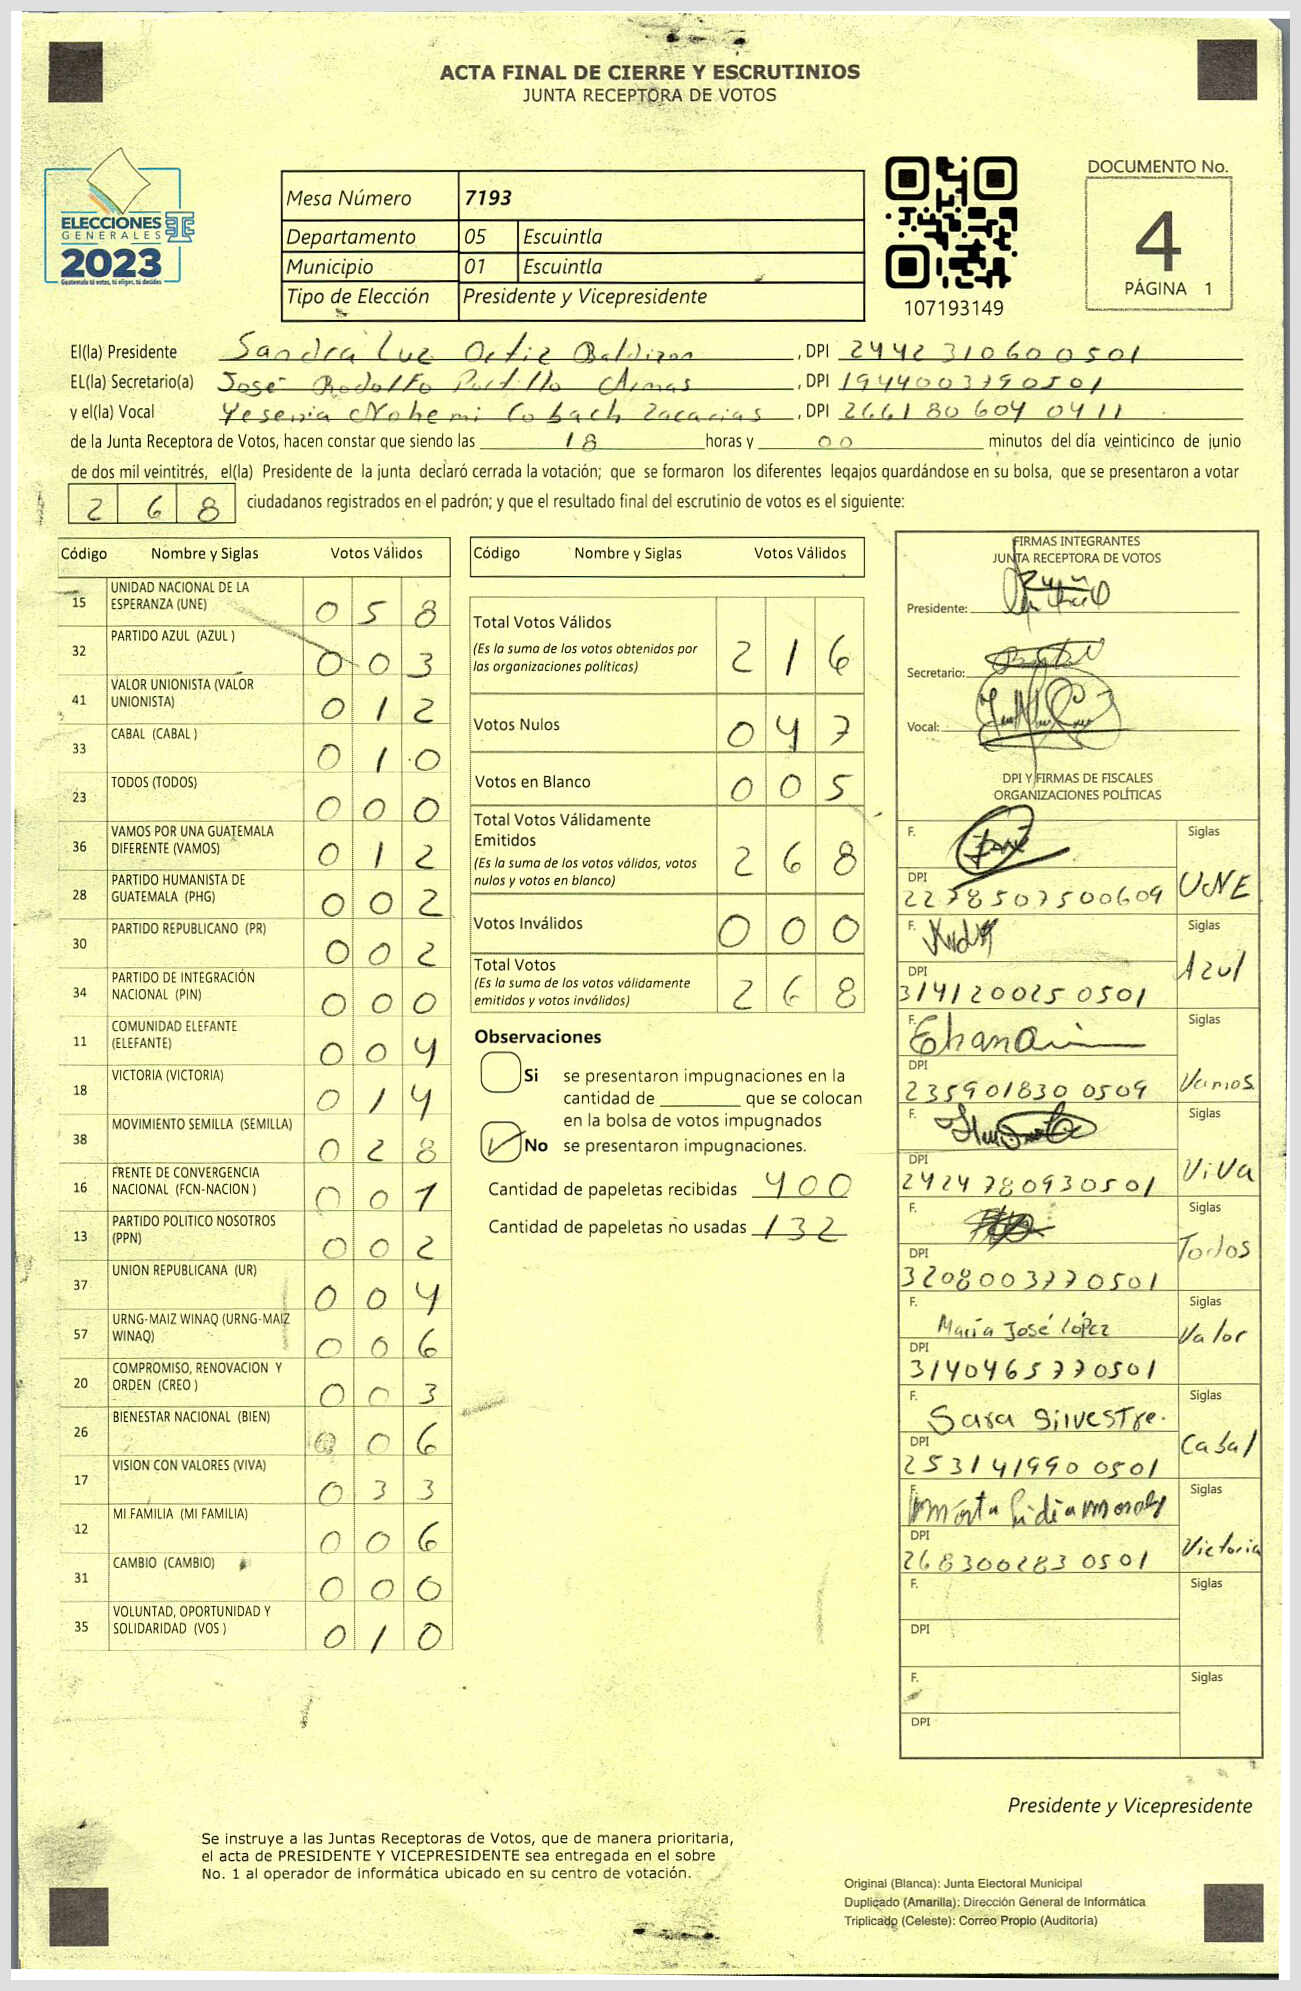 ACTA FINAL DE CIERRE Y ESCRUTINIOS
JUNTA RECEPTORA DE VOTOS
ELECCIONES
GENERALES
2023
Guatemala tú votas, tú eliges, tú decides
Mesa Número 7193
Departamento 05 Escuintla
Municipio 01 Escuintla
Tipo de Elección Presidente y Vicepresidente
107193149
DOCUMENTO No.
4
PÁGINA 1
El(la) Presidente Sandra Luz Ortiz Baldizon , DPI 2442310600501
EL(la) Secretario(a) José Rodolfo Portillo Armas , DPI 1944003790501
y el(la) Vocal Yesenia Nohemi Cobach Zacarias , DPI 2661806040411
de la Junta Receptora de Votos, hacen constar que siendo las 18 horas y 00 minutos del día veinticinco de junio
de dos mil veintitrés, el(la) Presidente de la junta declaró cerrada la votación; que se formaron los diferentes legajos guardándose en su bolsa, que se presentaron a votar
268 ciudadanos registrados en el padrón; y que el resultado final del escrutinio de votos es el siguiente:
Código Nombre y Siglas Votos Válidos
15 UNIDAD NACIONAL DE LA ESPERANZA (UNE) 058
32 PARTIDO AZUL (AZUL ) 003
41 VALOR UNIONISTA (VALOR UNIONISTA) 012
33 CABAL (CABAL ) 010
23 TODOS (TODOS) 000
36 VAMOS POR UNA GUATEMALA DIFERENTE (VAMOS) 012
28 PARTIDO HUMANISTA DE GUATEMALA (PHG) 002
30 PARTIDO REPUBLICANO (PR) 002
34 PARTIDO DE INTEGRACIÓN NACIONAL (PIN) 000
11 COMUNIDAD ELEFANTE (ELEFANTE) 004
18 VICTORIA (VICTORIA) 014
38 MOVIMIENTO SEMILLA (SEMILLA) 028
16 FRENTE DE CONVERGENCIA NACIONAL (FCN-NACION ) 001
13 PARTIDO POLITICO NOSOTROS (PPN) 002
37 UNION REPUBLICANA (UR) 004
57 URNG-MAIZ WINAQ (URNG-MAIZ WINAQ) 006
20 COMPROMISO, RENOVACION Y ORDEN (CREO ) 003
26 BIENESTAR NACIONAL (BIEN) 006
17 VISION CON VALORES (VIVA) 033
12 MI FAMILIA (MI FAMILIA) 006
31 CAMBIO (CAMBIO) 000
35 VOLUNTAD, OPORTUNIDAD Y SOLIDARIDAD (VOS ) 010
Código Nombre y Siglas Votos Válidos
Total Votos Válidos 216
(Es la suma de los votos obtenidos por
las organizaciones políticas)
Votos Nulos 047
Votos en Blanco 005
Total Votos Válidamente
Emitidos 268
(Es la suma de los votos válidos, votos
nulos y votos en blanco)
Votos Inválidos 000
Total Votos 268
(Es la suma de los votos válidamente
emitidos y votos inválidos)
Observaciones
Si se presentaron impugnaciones en la
cantidad de ________ que se colocan
en la bolsa de votos impugnados
No se presentaron impugnaciones.
Cantidad de papeletas recibidas 400
Cantidad de papeletas no usadas 132
FIRMAS INTEGRANTES
JUNTA RECEPTORA DE VOTOS
Presidente:
Secretario:
Vocal:
DPI Y FIRMAS DE FISCALES
ORGANIZACIONES POLÍTICAS
F. Siglas
DPI
2278507500609 UNE
F. Siglas
DPI Azul
3141200250501
F. Siglas
DPI
2359018300509 Vamos
F. Siglas
DPI
2424780930501 ViVa
F. Siglas
DPI Todos
3208003770501
F. María José López Siglas
DPI Valor
3140465770501
F. Sara Silvestre. Siglas
DPI Cabal
2531419900501
F. Marta Lidia Siglas
DPI
2683002830501 Victoria
F. Siglas
DPI
F. Siglas
DPI
Presidente y Vicepresidente
Se instruye a las Juntas Receptoras de Votos, que de manera prioritaria,
el acta de PRESIDENTE Y VICEPRESIDENTE sea entregada en el sobre
No. 1 al operador de informática ubicado en su centro de votación.
Original (Blanca): Junta Electoral Municipal
Duplicado (Amarilla): Dirección General de Informática
Triplicado (Celeste): Correo Propio (Auditoría)